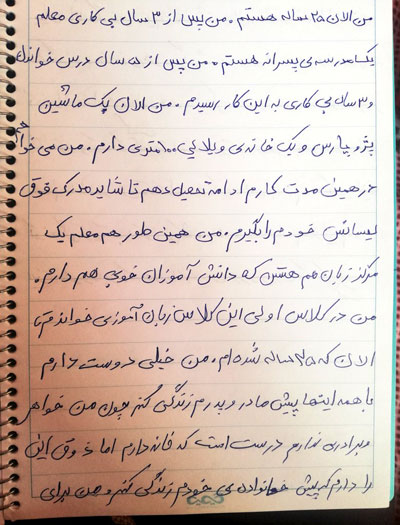 من الان ۲۵ ساله هستم. من پس از ۳ سال بی کاری معلم
یک مدرسه ی پسرانه هستم. من پس از ۵ سال درس خواندن
و ۳ سال بی کاری به این کار رسیدم. من الان یک ماشین
پژو پارس و یک خانه ی ویلایی ۱۰۰ متری دارم. من می خواهم
در همین مدت کارم ادامه تحصیل دهم تا شاید مدرک فوق
لیسانس خودم را بگیرم. من همین طور هم معلم یک
مرکز زبان هم هستن که دانش آموزان خوبی هم دارم.
من در کلاس اولی این کلاس زبان آموزی خوانده
الان که ۲۵ ساله شده ام. من خیلی دوست دارم
با همه اینها پیش مادر و پدرم زندگی کنم چون من خواهر
و برادری ندارم درست است که خانه دارم اما ذوق این
را دارم که پیش خانواده ی خودم زندگی کنم و من برای